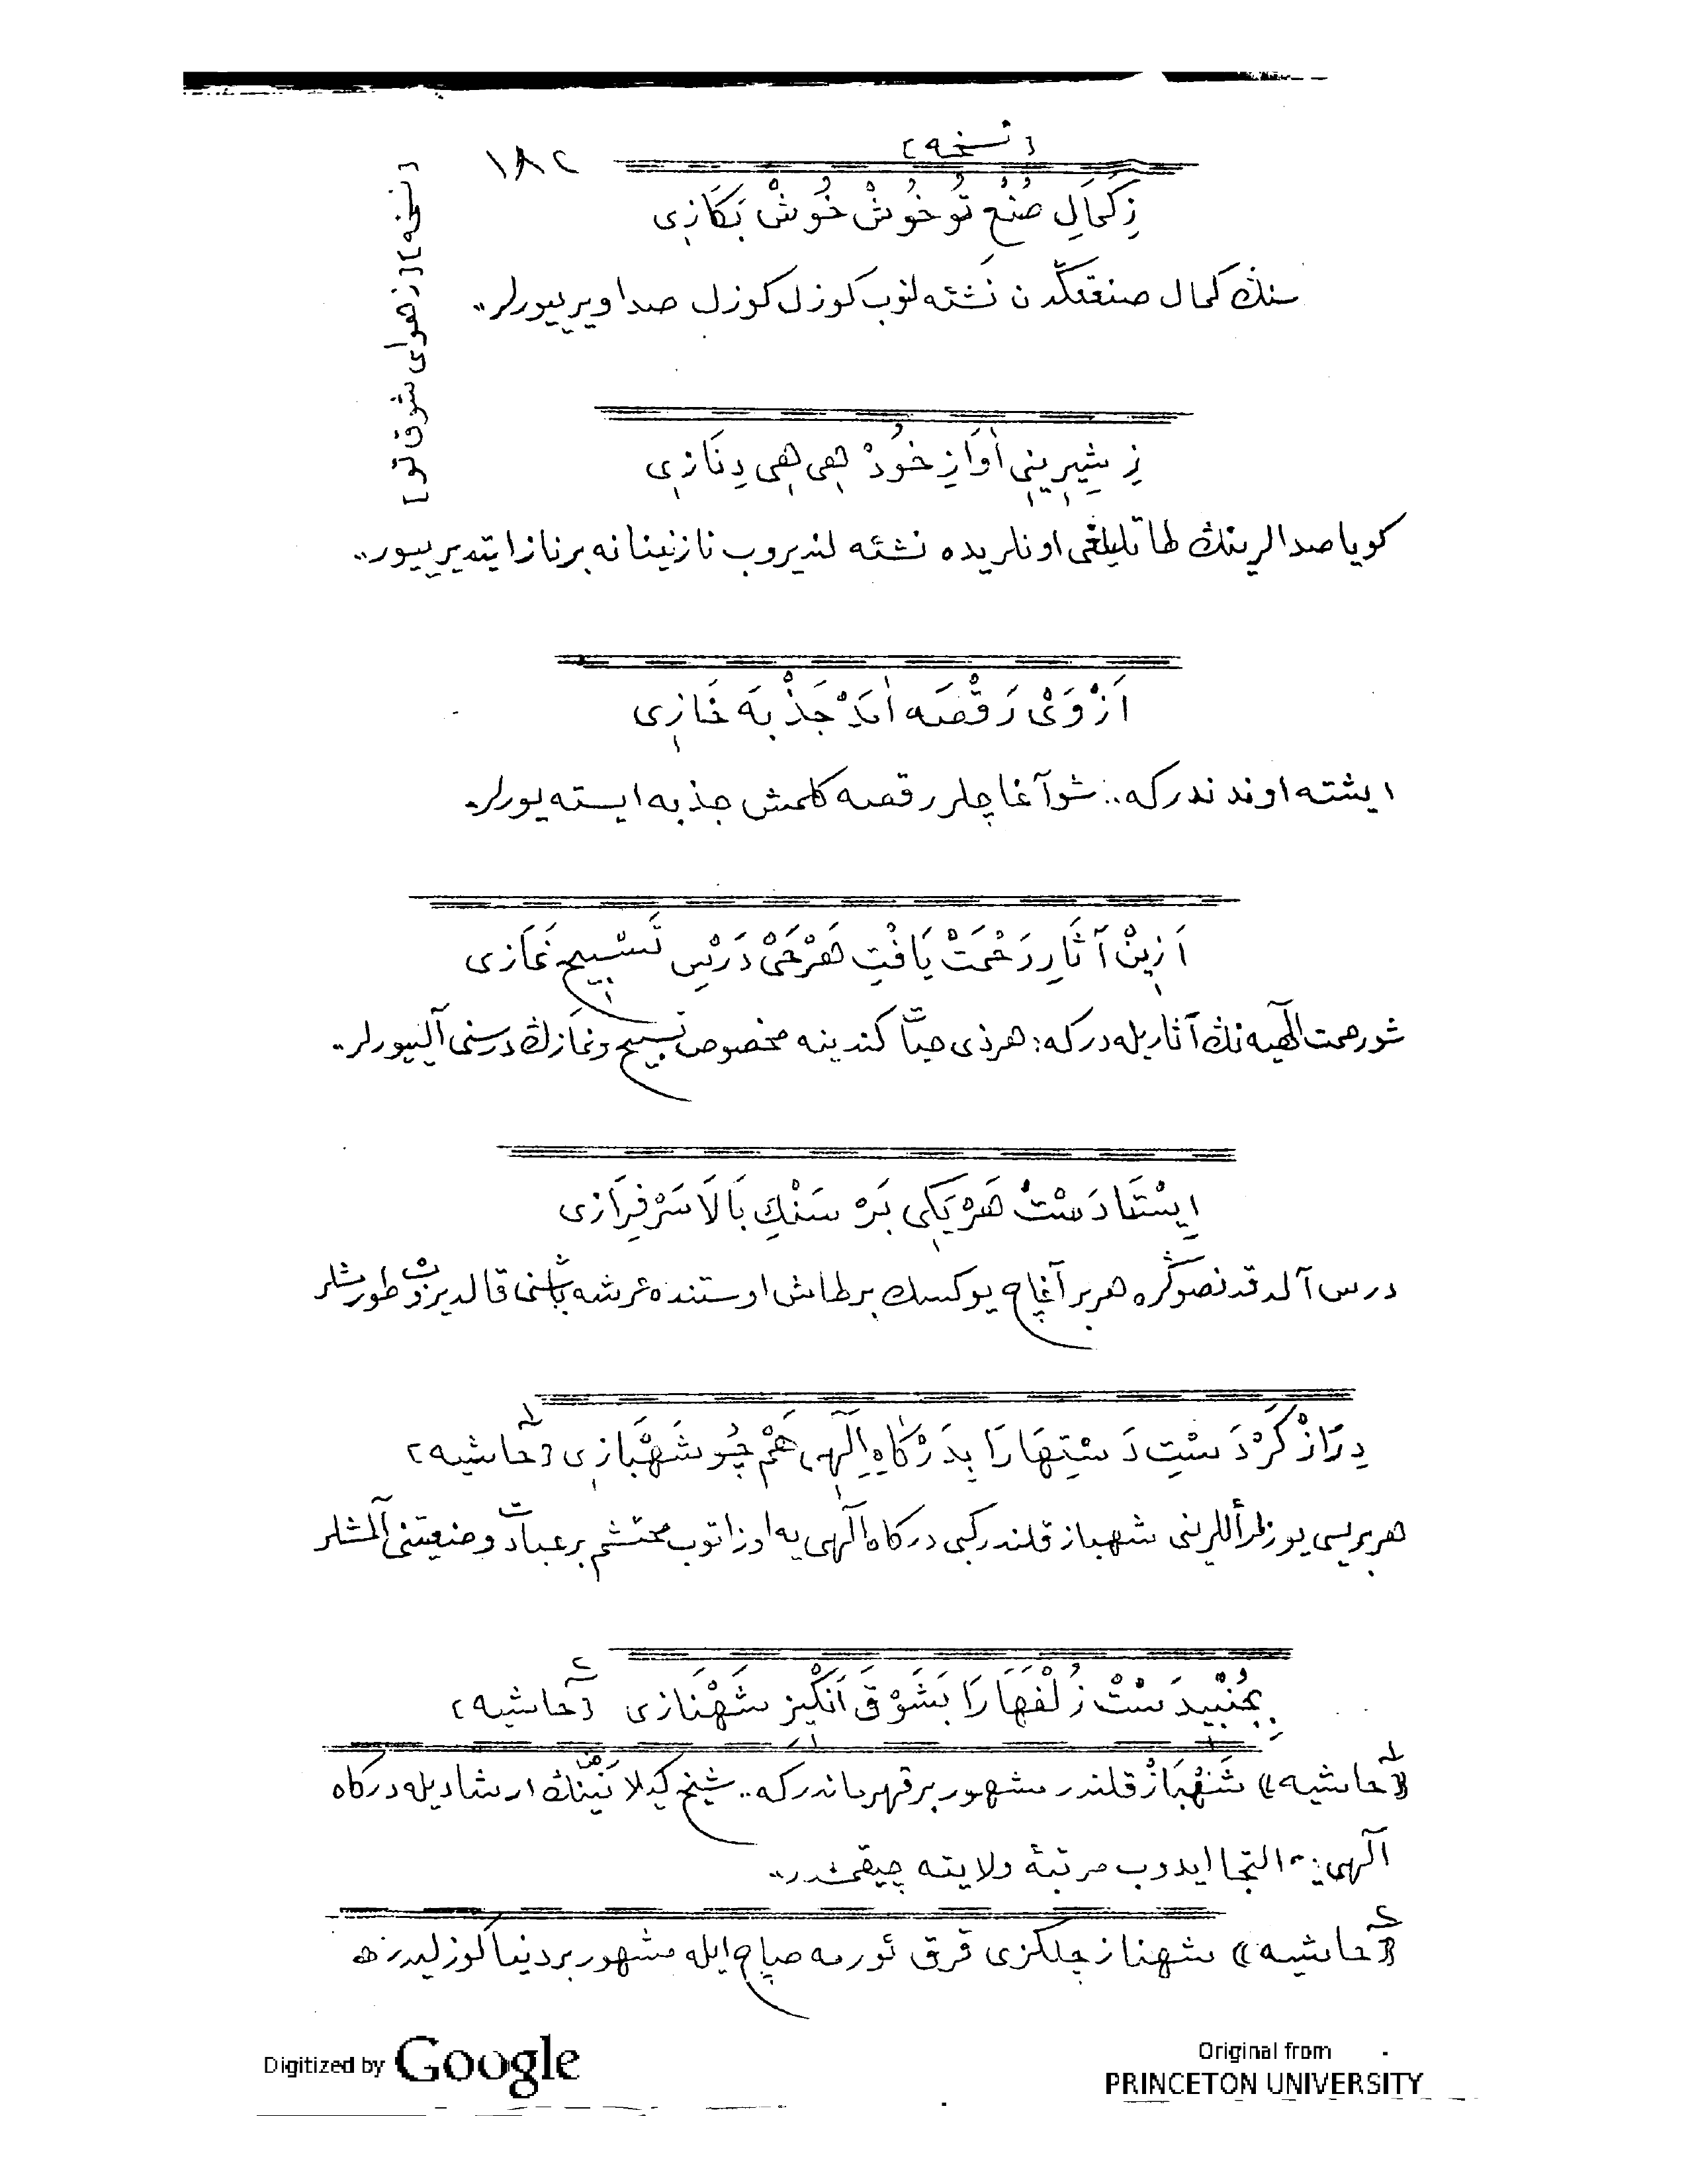 ١٨٢
[نسخه]
[نسخه] [ز هواى شوق تو]
زِكَمَالِ صُنْعِ تُو خُوشْ خُوشْ بَكَازِى
سنڭ كمال صنعتڭدن نَشئه‌لنوب كوزل كوزل صدا ويرييورلر..
زِ شِيرِينِىِ اٰوَازِ خُودْ هِى هِى دِنَازِى
كويا صدالرينڭ طاتليلغى اونلريده نشئه‌لنديروب نازنينانه برناز ايتديرييور..
اَزْوَىْ رَقْصَه اٰمَدْ جَذْبَه خَازِى
ايشته اوندندركه.. شو آغاچلر رقصه كلمش جذبه ايسته‌يورلر.
اَزِينْ آثَارِ رَحْمَتْ يَافْتِ هَرْحَىْ دَرْسِ تَسْبِيحِ نَمَازِى
شو رحمت الٰهيه‌نڭ آثاريله‌دركه: هرذى حيات كندينه مخصوص تسبيح و نمازڭ درسنى آلييورلر..
اِيسْتَادَسْتْ هَرْ يَكِى بَرْ سَنْكِ بَالَا سَرْفِرَازِى
درس آلدقدنصوڭره هر بر آغاچ يوكسك بر طاش اوستنده عرشه باشنى قالديروب طورمشلر
دِرَازْ كَرْدَسْتِ دَسْتِهَارَا بِدَرْكَاهِ اِلٰهِى هَمْ چُو شَهْبَازِى [حاشيه ١]
هربريسى يوزلر أللرينى شهباز قلندر كبى دركاه الٰهى‌يه اوزاتوب محتشم بر عبادت وضعيتنى آلمشلر
بِجُنْبِيدَسْتْ زُلْفَهَارَا بَشَوْقَ اَنْكِيزِ شَهْنَازِى [حاشيه ٢]
[حاشيه ١]) شَهْبَازْ قلندر مشهور بر قهرماندركه.. شيخ كيلانينڭ ارشاديله دركاه
الٰهى‌يه التجا ايدوب مرتبۀ ولايته چيقمشدر..
[حاشيه ٢]) شهناز چلكزى قرق ئورمه صاچ ايله مشهور بر دنيا كوزليدر
Digitized by Google
Original from
PRINCETON UNIVERSITY